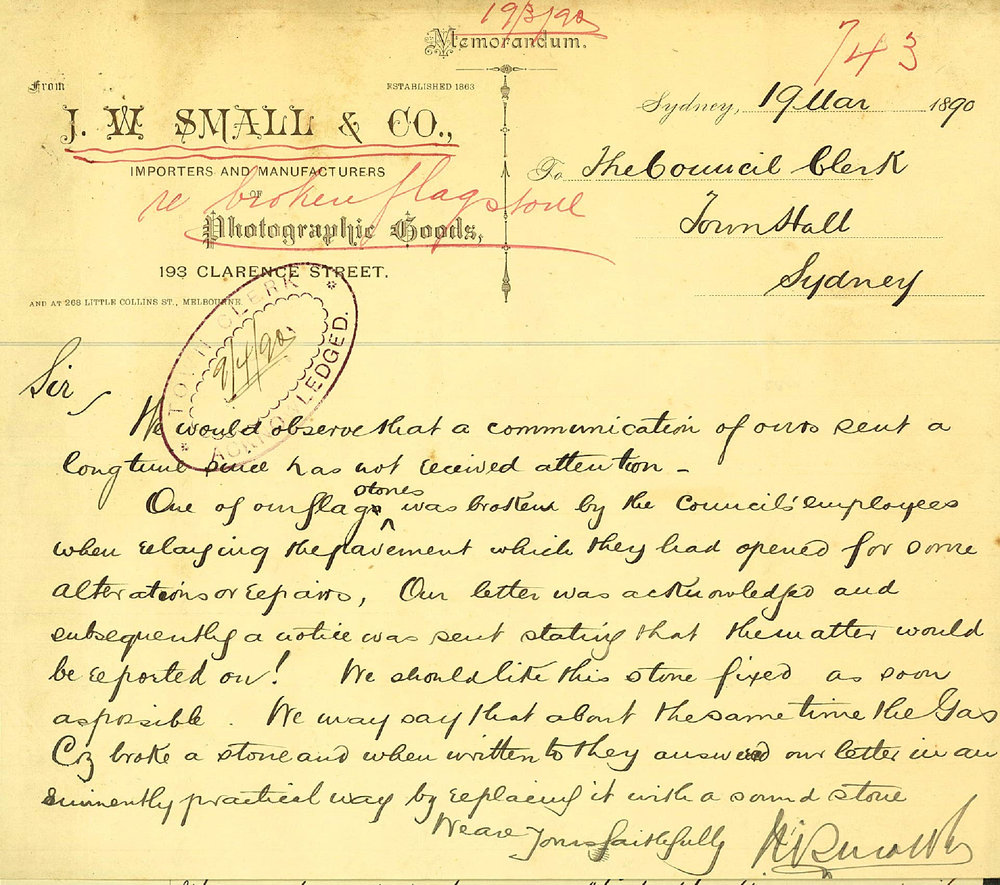 19/3/90
Memorandum.
743
From
ESTABLISHED 1863
J. W. SMALL & CO.,
IMPORTERS AND MANUFACTURERS
OF
re broken flagstone
Photographic Goods,
193 CLARENCE STREET.
AND AT 268 LITTLE COLLINS ST., MELBOURNE
Sydney, 19 Mar 1890
To The Council Clerk
Town Hall
Sydney
TOWN CLERK
9/4/90
ACKNOWLEDGED.
Sir
We would observe that a communication of ours sent a
long time since has not received attention -
One of our flag stones was broken by the Council's employees
when relaying the pavement which they had opened for some
alterations or repairs, Our letter was acknowledged and
subsequently a notice was sent stating that the matter would
be reported on! We should like this stone fixed as soon
as possible. We may say that about the same time the Gas
Coy broke a stone and when written to they answered our letter in an
eminently practical way by replacing it with a sound stone
We are Yours faithfully